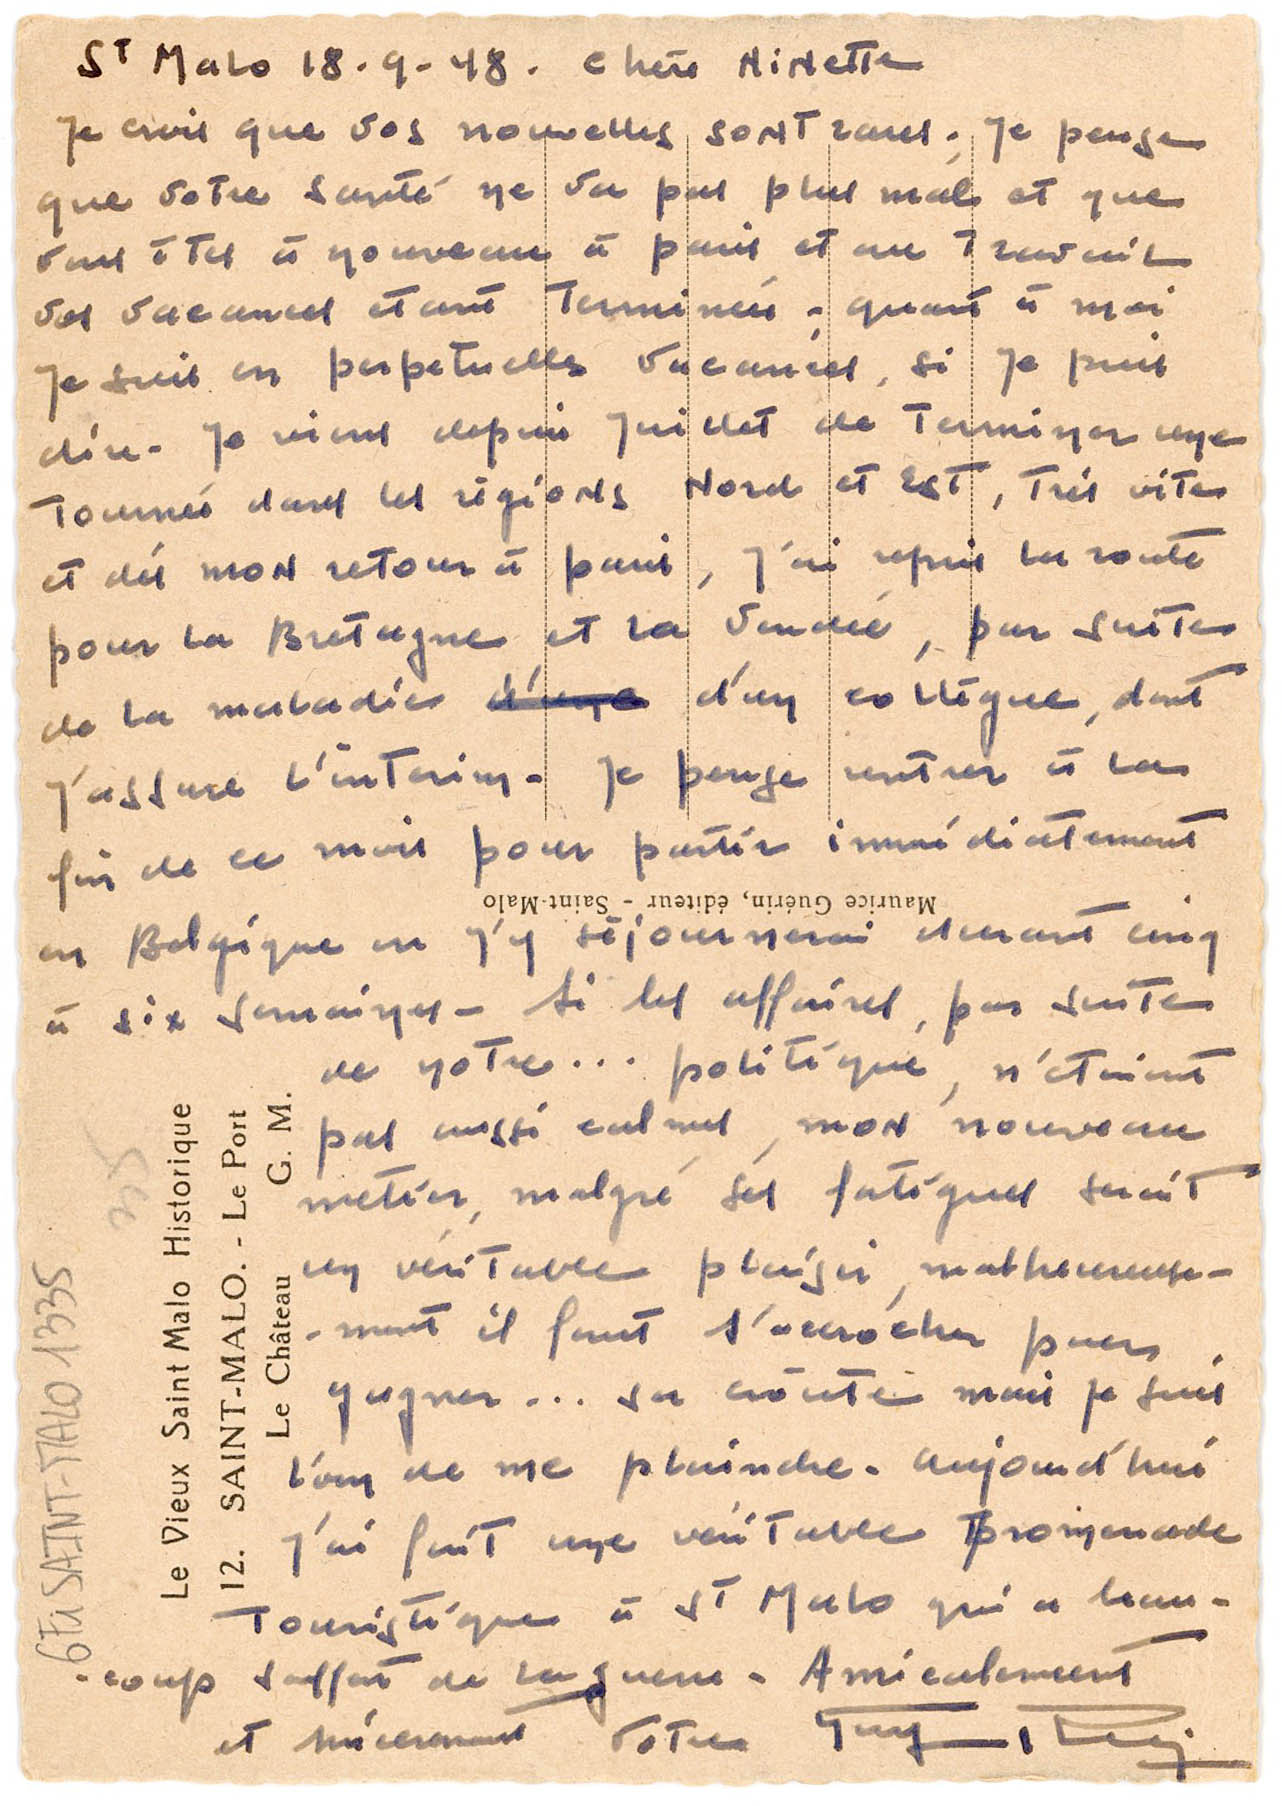 St Malo 18.9.48. Chère Ninette
Je crois que vos nouvelles sont rares; je pense
que votre santé ne va pas plus mal et que
vous êtes à nouveau à Paris et au travail
vos vacances étant terminées - quant à moi
je suis en perpetuelles vacances, si je puis
dire - Je viens depuis juillet de terminer une
tournée dans les régions Nord et Est, très vite
et dès mon retour à Paris, j'ai repris la route
pour la Bretagne et la Vendée, par suite
de la maladie d'une d'un collègue, dont
j'assure l'interim - Je pense rentrer à la
fin de ce mois pour partir immédiatement
Maurice Guérin, éditeur - Saint-Malo
en Belgique où j'y séjournerai durant cinq
à six semaines - Si les affaires, par suite
de notre... politique, n'étaient
pas aussi calmes, mon nouveau
metier, malgré ses fatigues serait
un véritable plaisir, malheureuse-
-ment il faut s'accrocher pour
gagner... sa croûte mais je suis
loin de me plaindre - aujourd'hui
j'ai fait une véritable promenade
touristique à St Malo qui a beau-
-coup souffert de la guerre - Amicalement
et sincèrement votre Guy
Le Vieux Saint Malo Historique
12. SAINT-MALO. - Le Port
Le Château G. M.
6Fi SAINT-MALO 1335